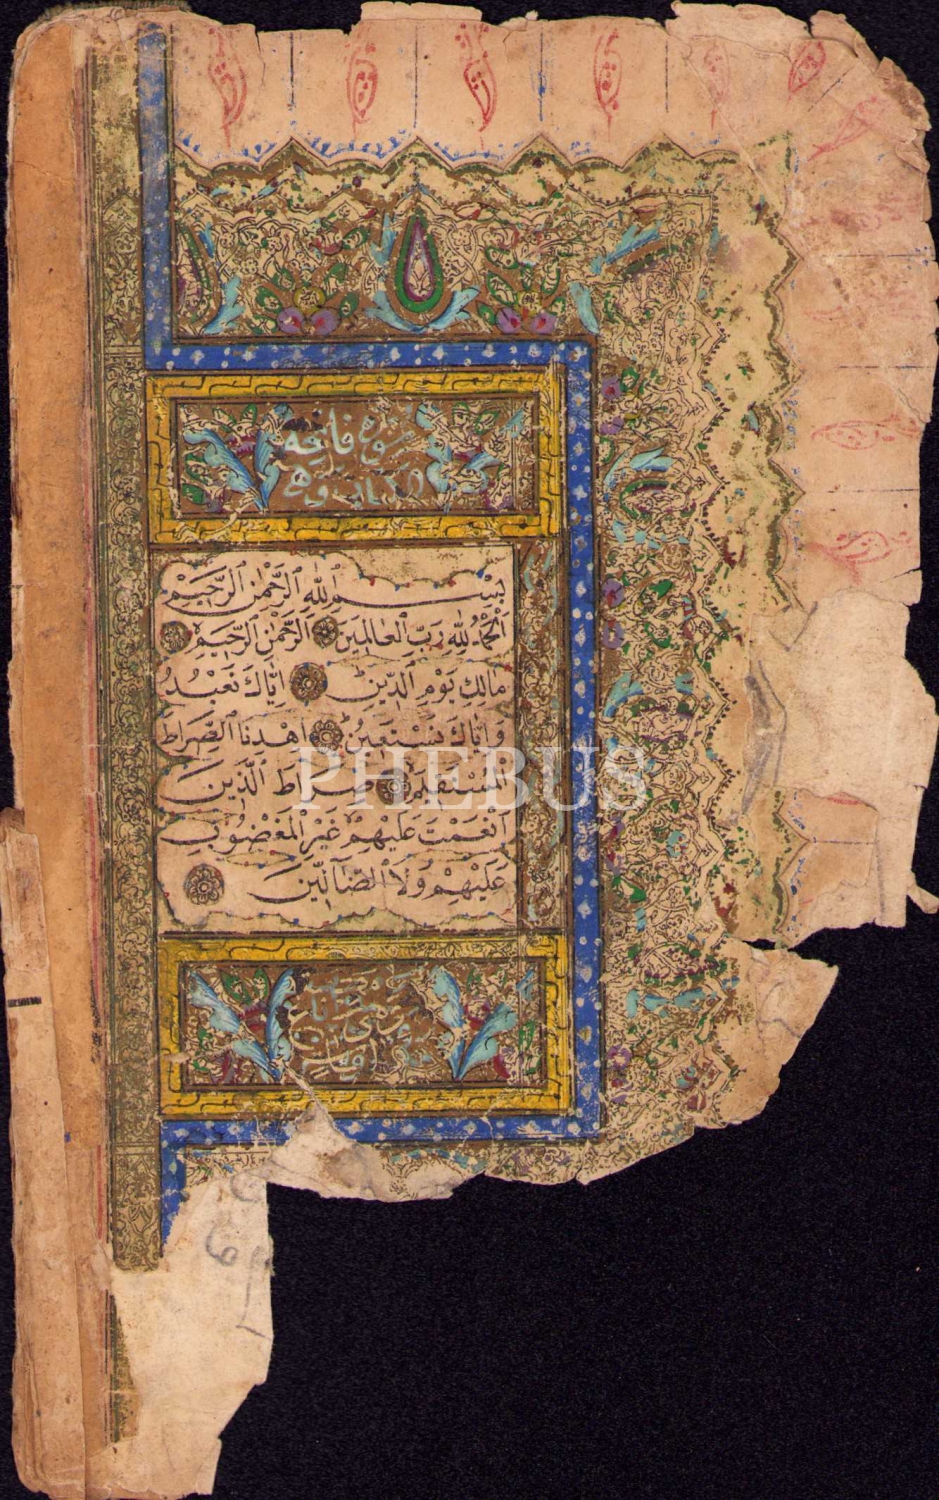 سورة فاتحة
الكتاب وهي
بِسْمِ اللهِ الرَّحْمٰنِ الرَّحِيمِ
اَلْحَمْدُ لِلّٰهِ رَبِّ الْعَالَمِينَ الرَّحْمٰنِ الرَّحِيمِ
مَالِكِ يَوْمِ الدِّينِ اِيَّاكَ نَعْبُدُ
وَاِيَّاكَ نَسْتَعِينُ اِهْدِنَا الصِّرَاطَ
الْمُسْتَقِيمَ صِرَاطَ الَّذِينَ
اَنْعَمْتَ عَلَيْهِمْ غَيْرِ الْمَغْضُوبِ
عَلَيْهِمْ وَلَا الضَّالِّينَ
PHEBUS